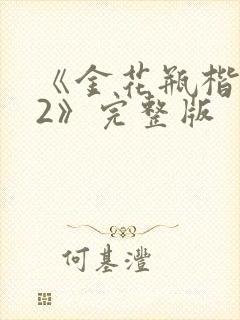 《金花瓶楷
2》完整版
何基灃